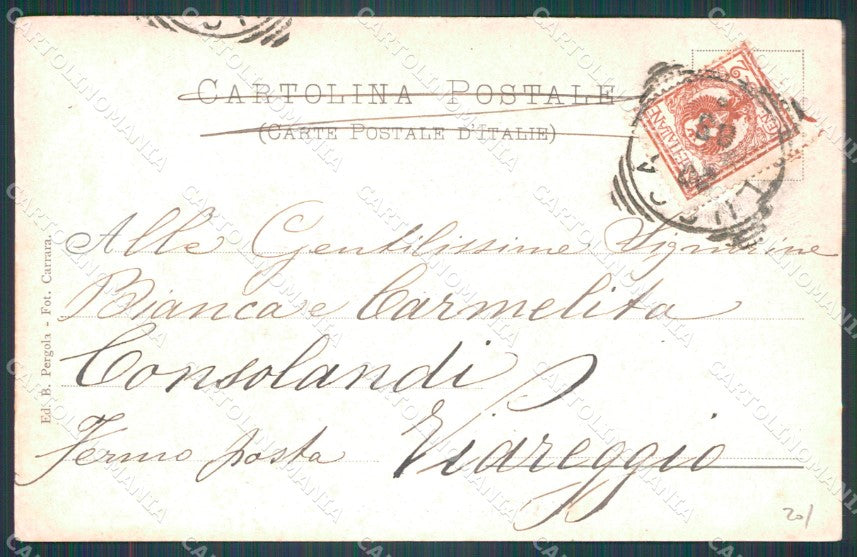 CARTOLINA POSTALE
(CARTE POSTALE D'ITALIE)
LUCCA
Alle Gentilissime Signorine
Bianca e Carmelita
Consolandi
Fermo posta Viareggio
Ed. B. Pergola - Fot. Carrara.
20/
CARTOLINOMANIA